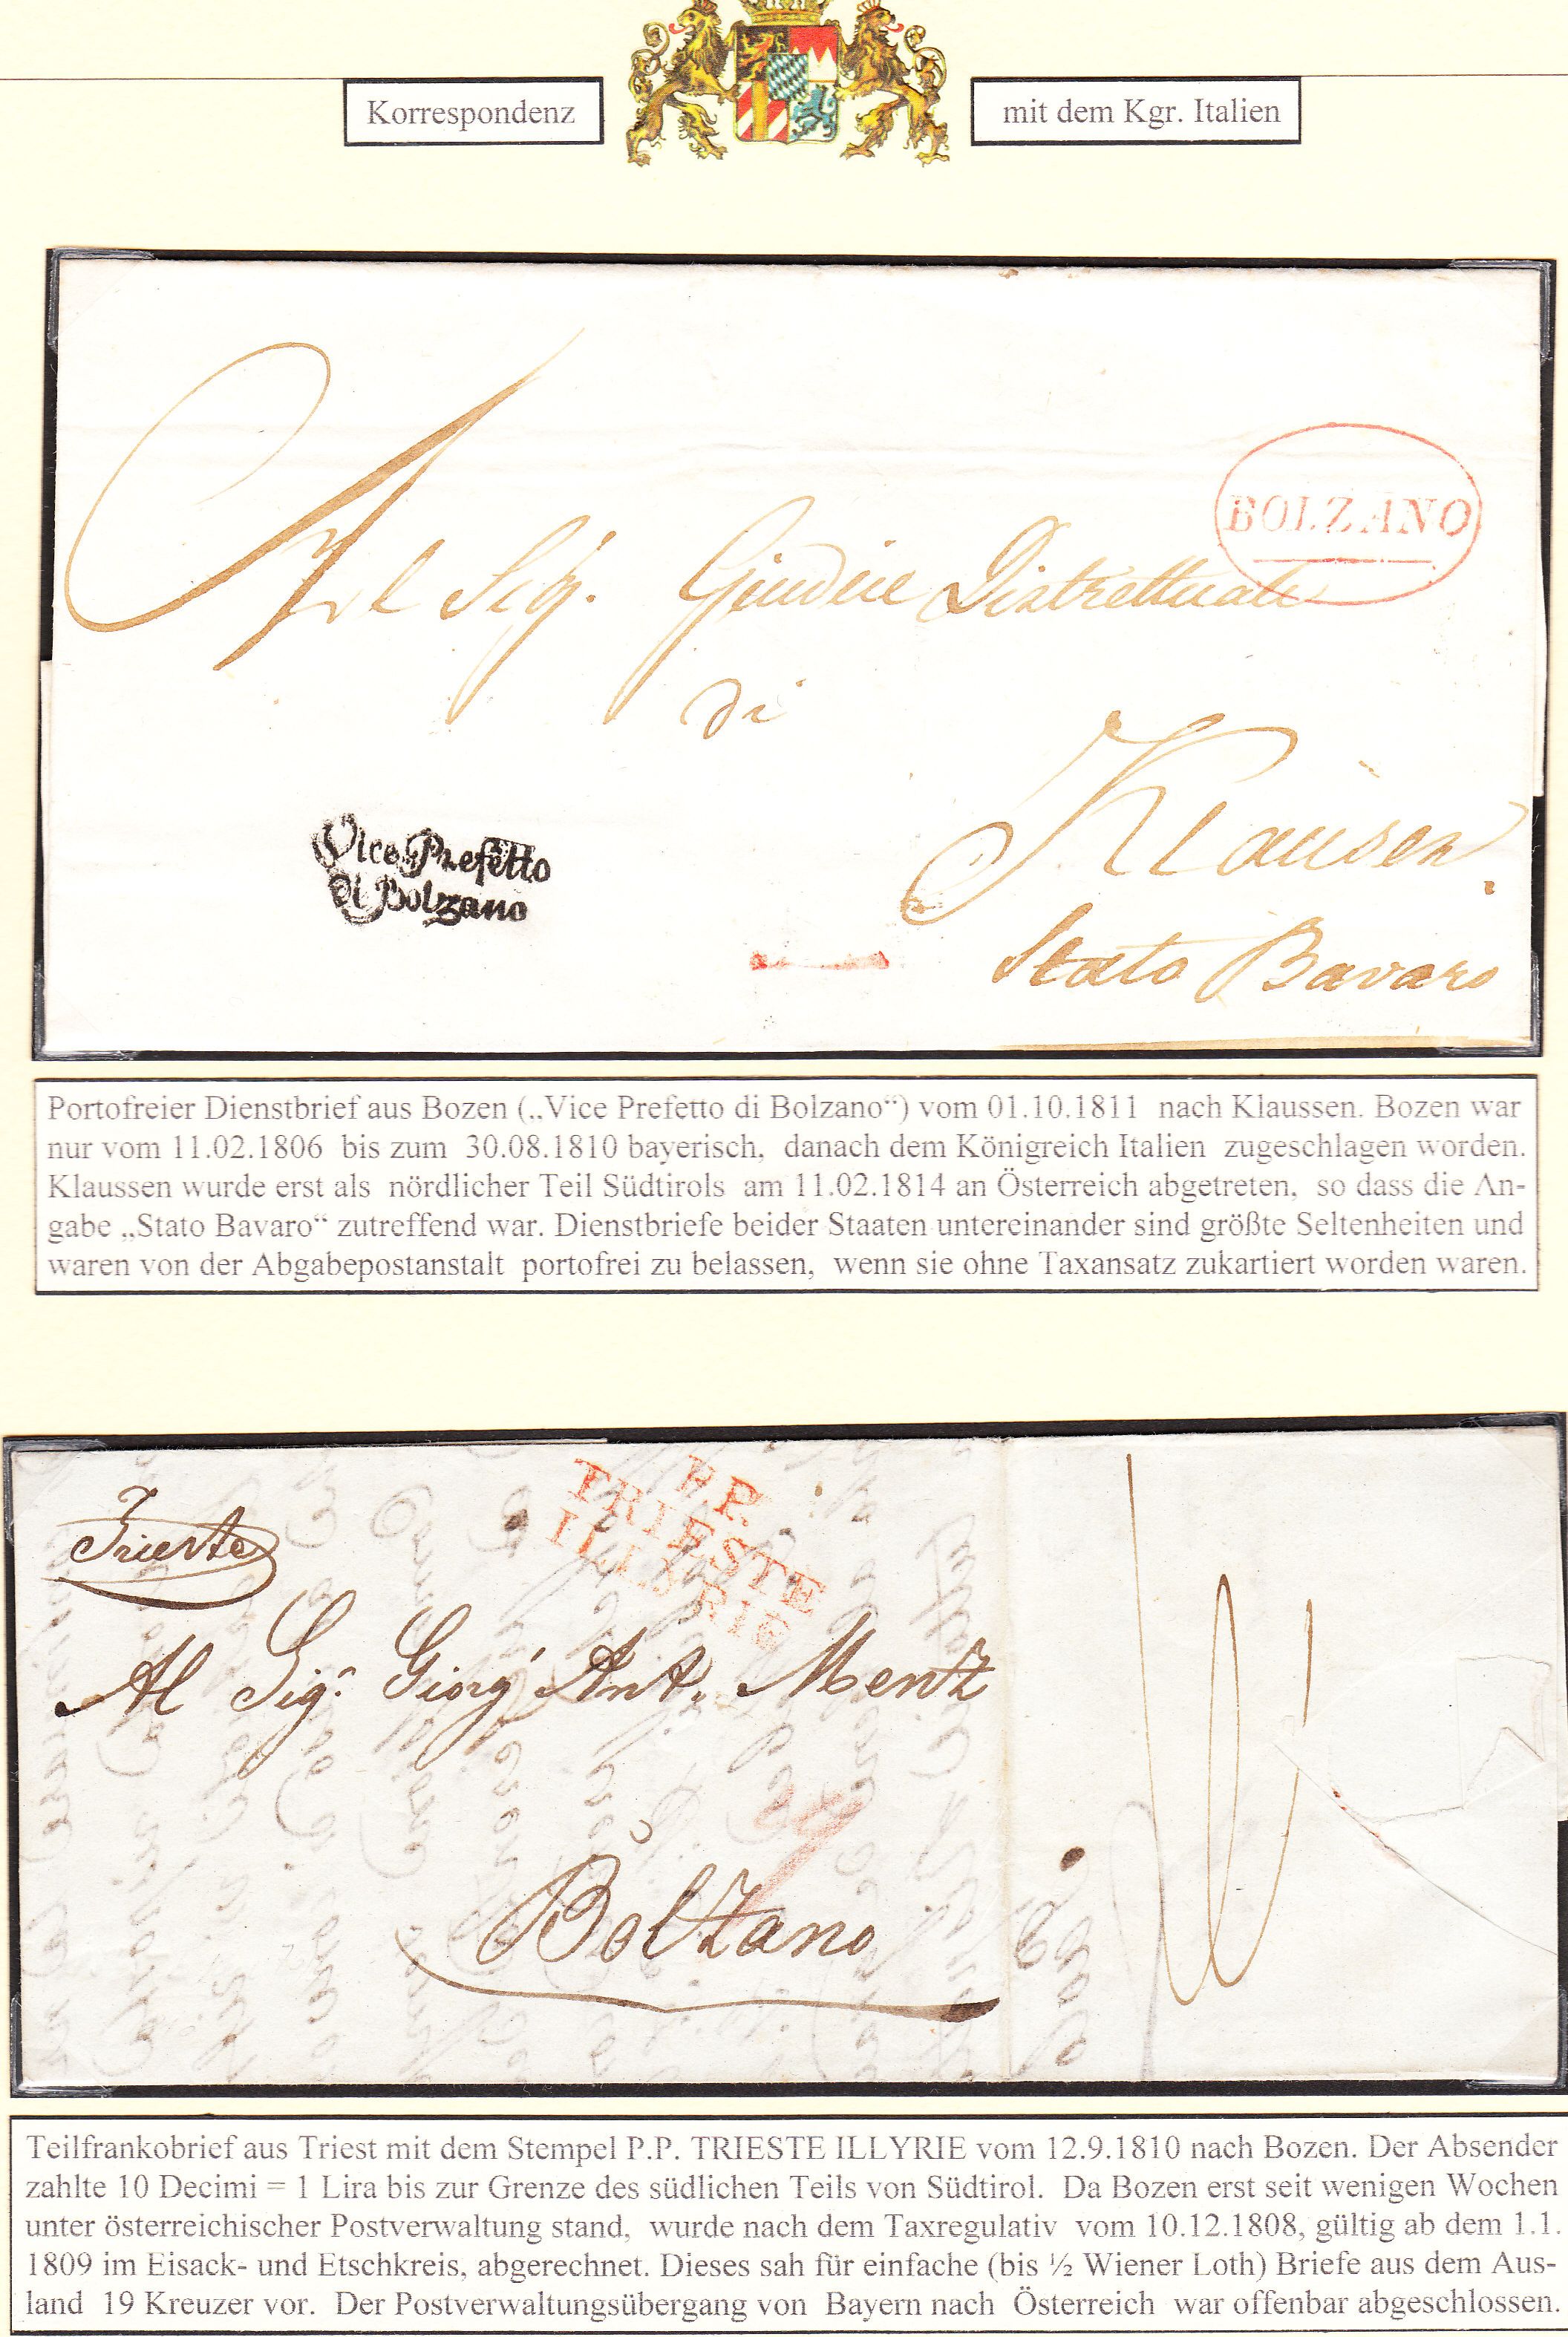 Korrespondenz
mit dem Kgr. Italien
BOLZANO
Al Sigr. Giudice Distrettuale
di
Klausen
Stato Bavaro
Vice Prefetto
di Bolzano
Portofreier Dienstbrief aus Bozen („Vice Prefetto di Bolzano“) vom 01.10.1811 nach Klaussen. Bozen war
nur vom 11.02.1806 bis zum 30.08.1810 bayerisch, danach dem Königreich Italien zugeschlagen worden.
Klaussen wurde erst als nördlicher Teil Südtirols am 11.02.1814 an Österreich abgetreten, so dass die An-
gabe „Stato Bavaro“ zutreffend war. Dienstbriefe beider Staaten untereinander sind größte Seltenheiten und
waren von der Abgabepostanstalt portofrei zu belassen, wenn sie ohne Taxansatz zukartiert worden waren.
P.P.
TRIESTE
ILLYRIE
Trieste
Al Sigr. Giorg' Ant. Mentz
Bolzano
Teilfrankobrief aus Triest mit dem Stempel P.P. TRIESTE ILLYRIE vom 12.9.1810 nach Bozen. Der Absender
zahlte 10 Decimi = 1 Lira bis zur Grenze des südlichen Teils von Südtirol. Da Bozen erst seit wenigen Wochen
unter österreichischer Postverwaltung stand, wurde nach dem Taxregulativ vom 10.12.1808, gültig ab dem 1.1.
1809 im Eisack- und Etschkreis, abgerechnet. Dieses sah für einfache (bis ½ Wiener Loth) Briefe aus dem Aus-
land 19 Kreuzer vor. Der Postverwaltungsübergang von Bayern nach Österreich war offenbar abgeschlossen.